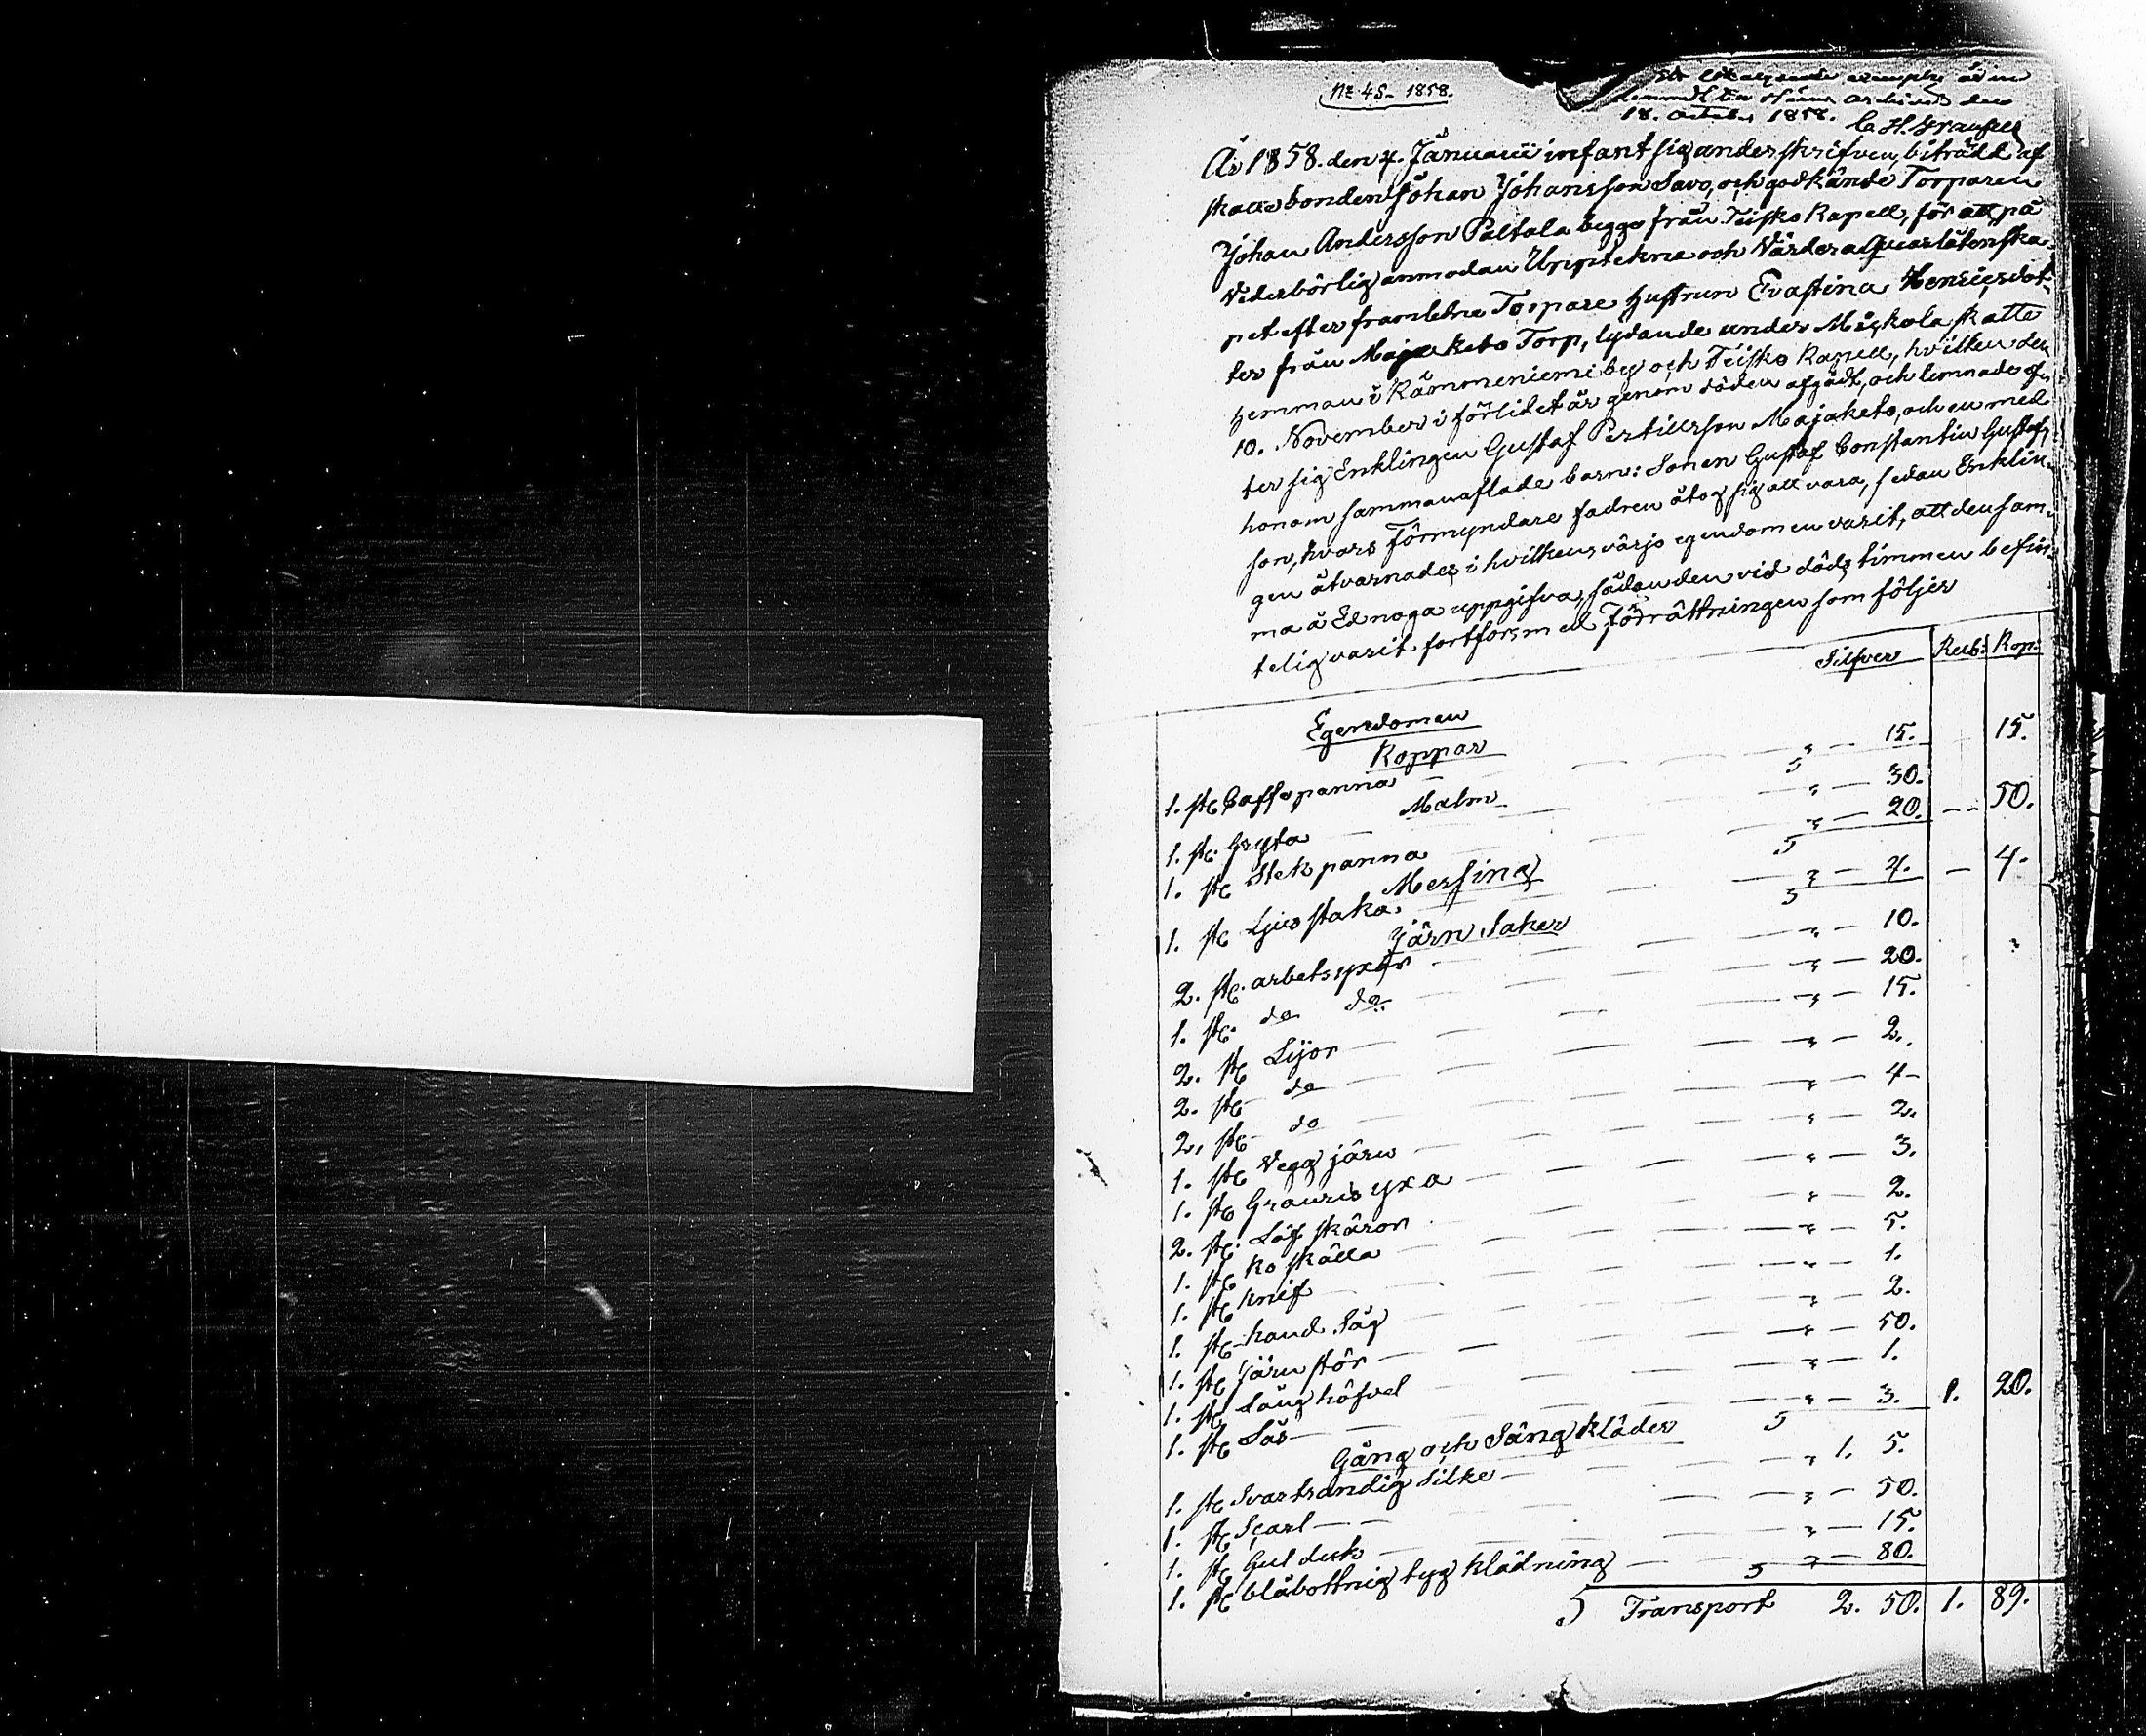 No 45 1858.
Ett lika lydande exemplar är in
lemnadt till archivet den
18. October 1858. C. H.
År 1858. den 4. Januarii infant sig underskrifven, biträdd af
skattebonden Johan Johansson Savo, och godkände Torparen
Johan Andersson Paltala begge från Teisko Kapell, för att på
Vederbörlig anmodan Uppteckna och Värdera Quarlåtenska-
pet efter framledne Torpare hustrun Evastina Henricsdot-
ter från Majaketo Torp, lydande under Mickola skatte
hemman i Kämmeniemi by och Teisko Kapell, hvilken den
10. November i förlidet år genom döden afgådt, och lemnade ef-
ter sig Enklingen Gustaf Pertillsson Majaketo, och en med
honom sammanaflade barn: Sonen Gustaf Constantin Gustafs-
son, hvars Förmyndare fadren åtog sig att vara, sedan Enklin-
gen åtvarnades i hvilkens värjo egendomen varit, att den sam-
ma å Ed noga uppgifva, sådan den vid dödstimmen befin-
telig varit, fortfors med Förrättningen som följer
Silfver Rub: Kop:
Egendomen
Koppar
1. st Caffepanna — 15. 15.
Malm
1. st. Gryta — 30.
1. st Stekpanna — 20. 50.
Messing
1. st Ljusstaka — 4. 4.
Järn Saker
2. st. arbetsyxor — 10.
1. st. do do — 20.
2. st Lijor — 15.
2. st do — 2.
2. st do — 4
1. st Vegg järn — 2.
1. st Granrisyxa — 3.
2. st. Löf skäron — 2.
1. st Ko skälla — 5.
1. st Knif — 1.
1. st hand Såg — 2.
1. st Järn stör — 50.
1. st Lång höfvel — 1.
1. st Lås — 3. 1. 20.
Gång och Säng kläder
1. st Svartrandig silke — 1. 5.
1. st Scarl — 50.
1. st Gul duk — 15.
1. st blåbottnig tyg klädning — 80.
Transport 2. 50. 1. 89.